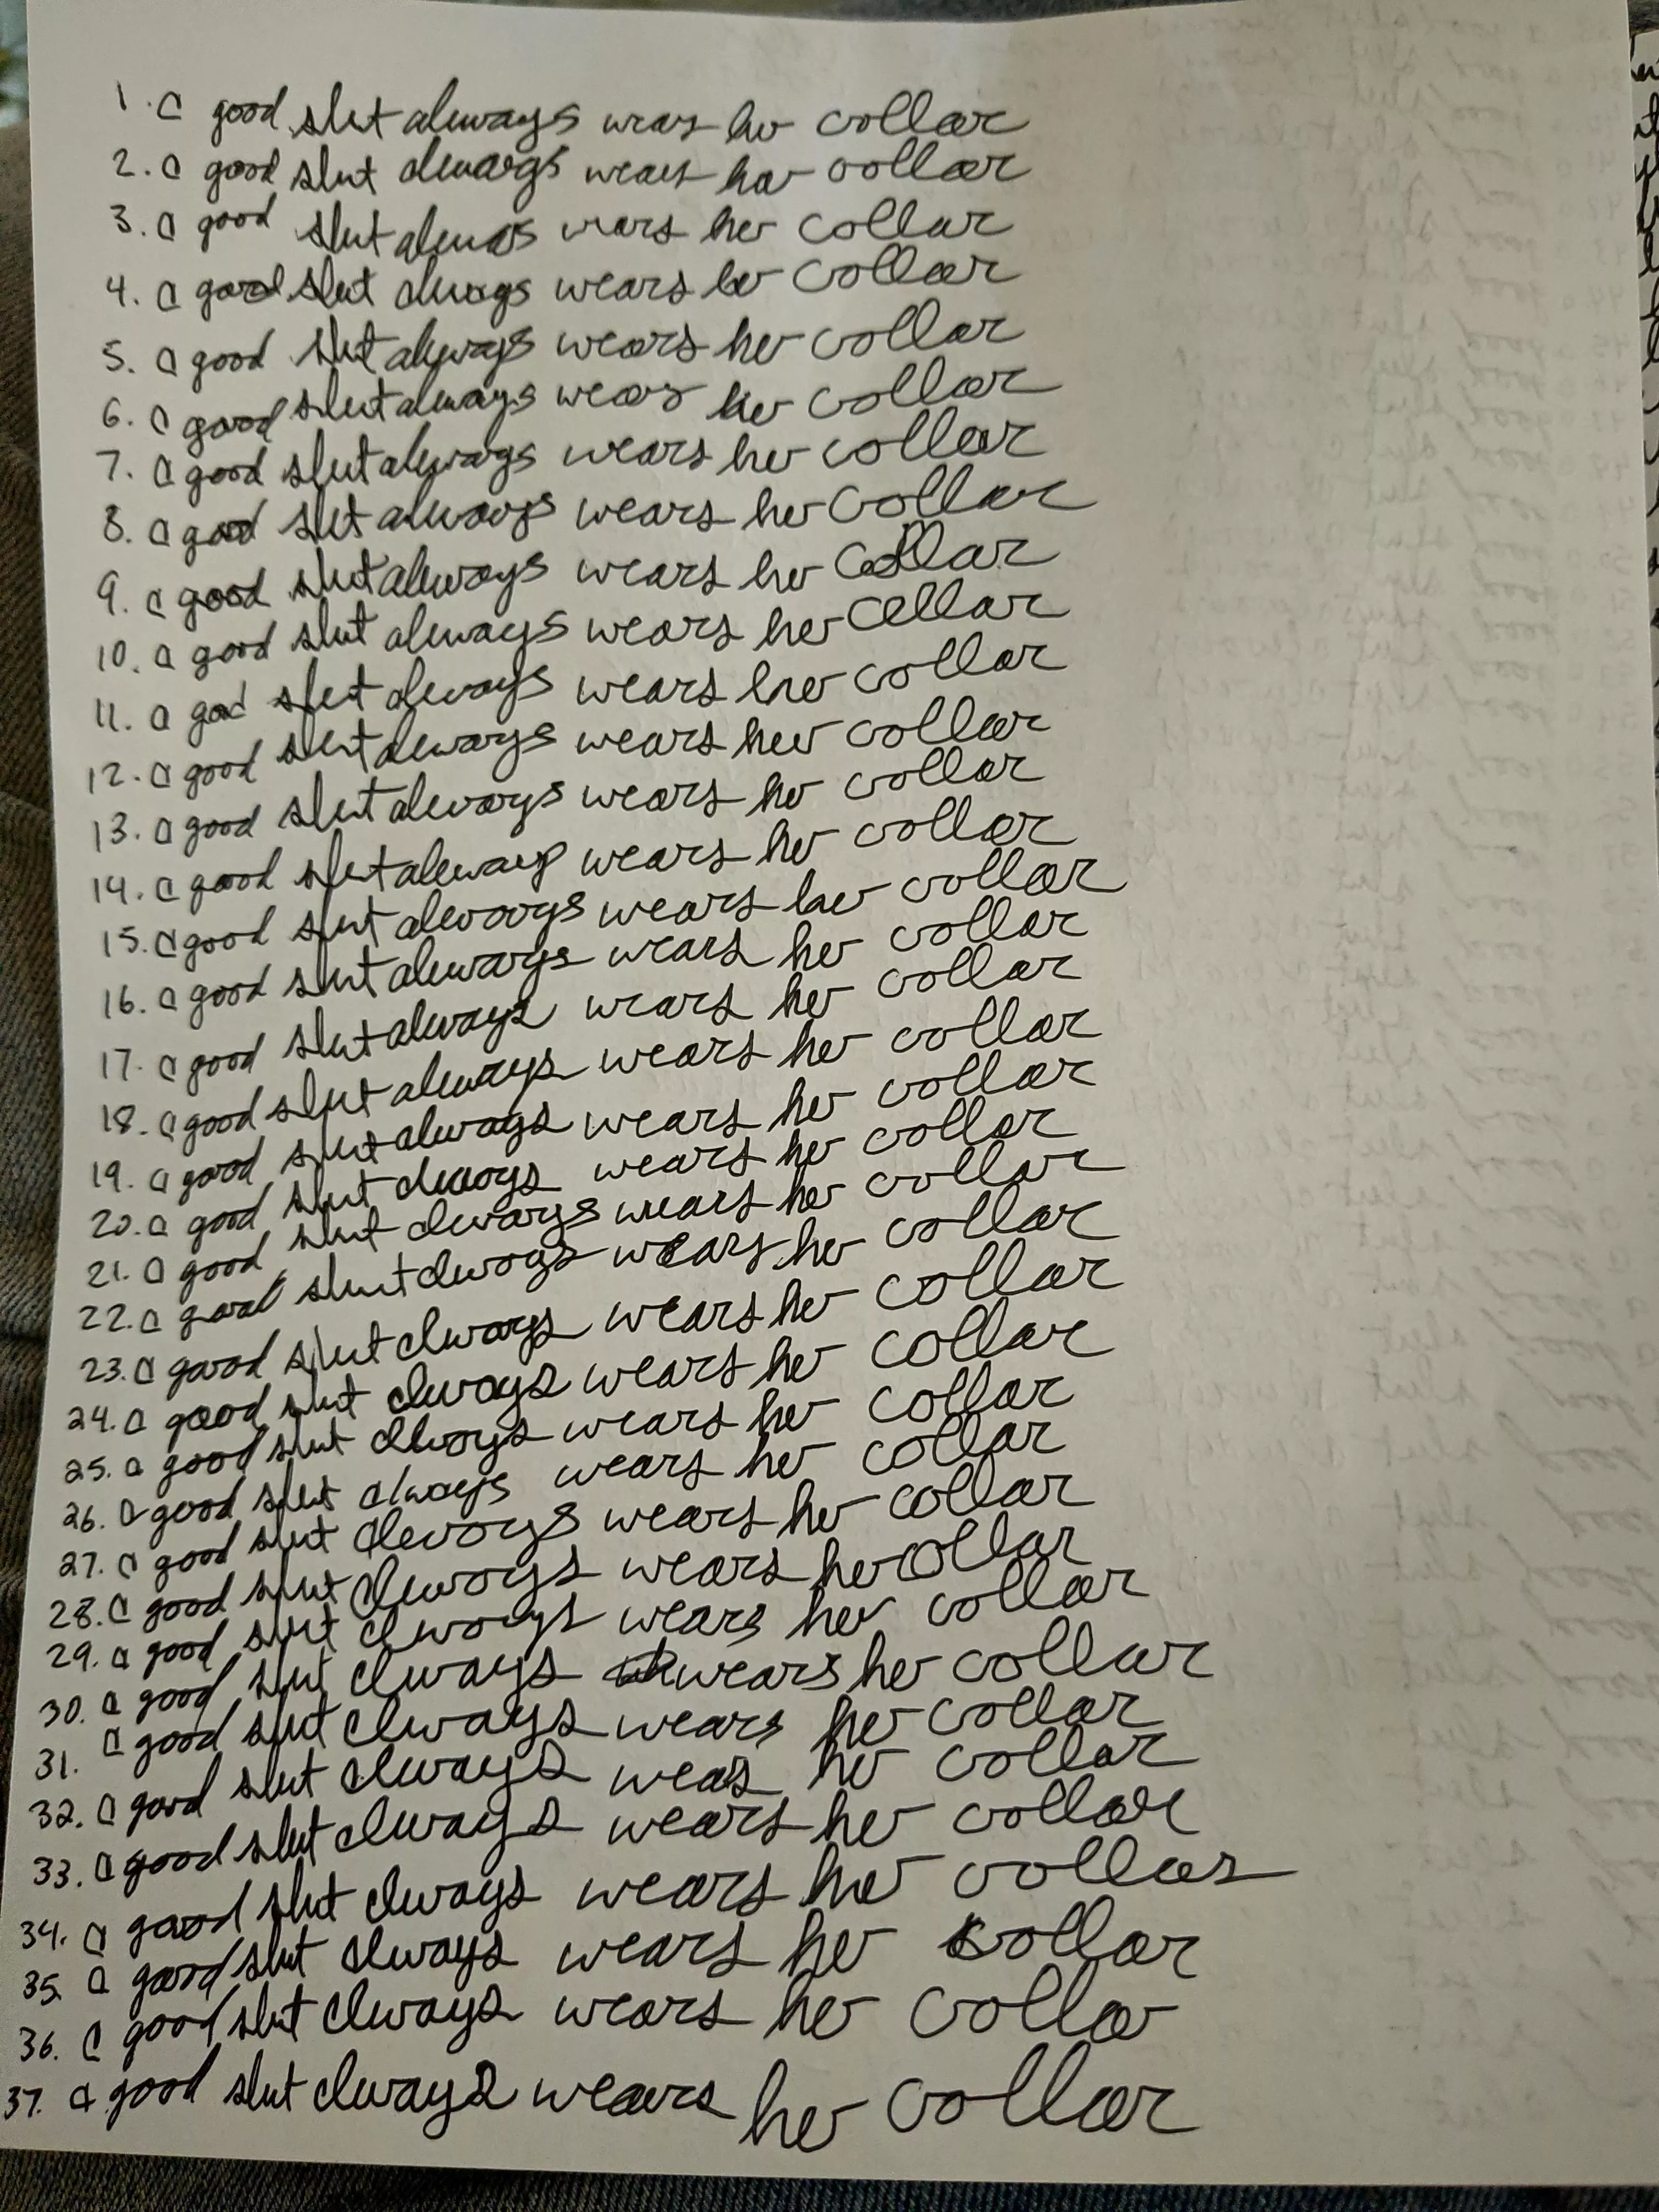 1. a good slut always wears her collar
2. a good slut always wears her collar
3. a good slut always wears her collar
4. a good slut always wears her collar
5. a good slut always wears her collar
6. a good slut always wears her collar
7. a good slut always wears her collar
8. a good slut always wears her collar
9. a good slut always wears her collar
10. a good slut always wears her collar
11. a good slut always wears her collar
12. a good slut always wears her collar
13. a good slut always wears her collar
14. a good slut always wears her collar
15. a good slut always wears her collar
16. a good slut always wears her collar
17. a good slut always wears her collar
18. a good slut always wears her collar
19. a good slut always wears her collar
20. a good slut always wears her collar
21. a good slut always wears her collar
22. a good slut always wears her collar
23. a good slut always wears her collar
24. a good slut always wears her collar
25. a good slut always wears her collar
26. a good slut always wears her collar
27. a good slut always wears her collar
28. a good slut always wears her collar
29. a good slut always wears her collar
30. a good slut always wears her collar
31. a good slut always wears her collar
32. a good slut always wears her collar
33. a good slut always wears her collar
34. a good slut always wears her collar
35. a good slut always wears her collar
36. a good slut always wears her collar
37. a good slut always wears her collar